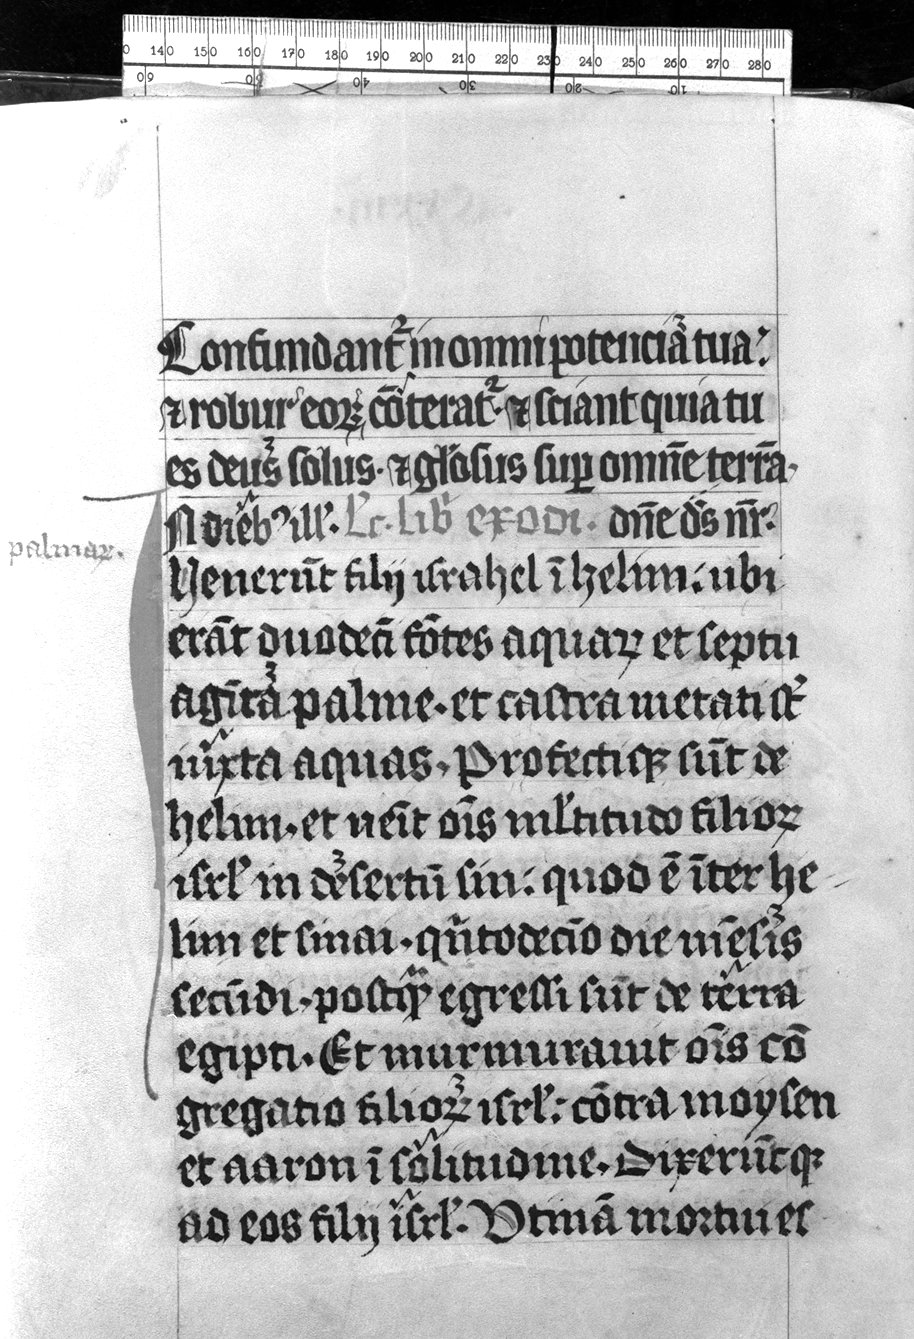 0 140 150 160 170 180 190 200 210 220 230 240 250 260 270 280
60 50 40 30 20 10
Confundant᷑ in omni potencia tua:
⁊ robur eoꝝ cōterat᷑. ⁊ sciant quia tu
es deus solus. ⁊ gl̄osus suꝑ omnē terrā.
N dieb᷒ ill̄. Lc̄. lib̄ exodi. dn̄e ds̄ nr̄.
palmaꝝ.
Venerūt filij israhel ī helim: ubi
erāt duodecī fōtes aquaꝝ et septu
agīta palme. et castra metati st̄
iuxta aquas. Profectiqꝫ sūt de
helim. et uēit oīs ml̄titudo filioꝝ
isrl̄ in desertū sin: quod ē īter he
lim et sinai. qn̄todecīo die mēsis
secūdi. postq̄ꝫ egressi sūt de terra
egipti. Et murmurauit oīs cō
gregatio filioꝝ isrl̄: cōtra moysen
et aaron ī solitudine. Dixerūtqꝫ
ad eos filij isrl̄. Vtinā mortui es